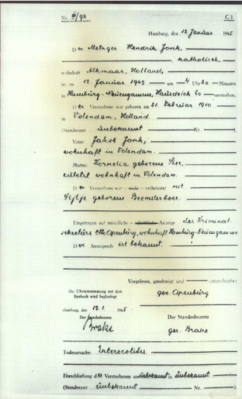 Nr. 8/93 C 1
Hamburg, den 13. Januar 1945
Der Metzger Hendrik Jonk,
katholisch,
wohnhaft Alkmaar, Holland,
ist am 12. Januar 1945 um 4 Uhr
in Hamburg-Neuengamme, Hausdeich 60 verstorben.
D er Verstorbene war geboren am 21. Februar 1910
in Volendam, Holland
(Standesamt unbekannt Nr. )
Vater: Jakob Jonk,
wohnhaft in Volendam.
Mutter: Kornelia geborene
zuletzt wohnhaft in Volendam.
D er Verstorbene war — nicht — verheiratet mit
geborene Beemsterboer.
Eingetragen auf mündliche — Anzeige des Kriminal
sekretärs Otto Apenburg, wohnhaft Hamburg-Neuengamme
D er Anzeigende ist bekannt.
Vorgelesen, genehmigt und unterschrieben
gez. Apenburg
Die Übereinstimmung mit dem
Erstbuch wird beglaubigt
Hamburg, den 13. 1. 1945
Der Standesbeamte Der Standesbeamte
Brake gez. Brake
Todesursache: Enterocolitis.
Eheschließung der Verstorbenen am unbekannt in unbekannt
(Standesamt unbekannt Nr. )